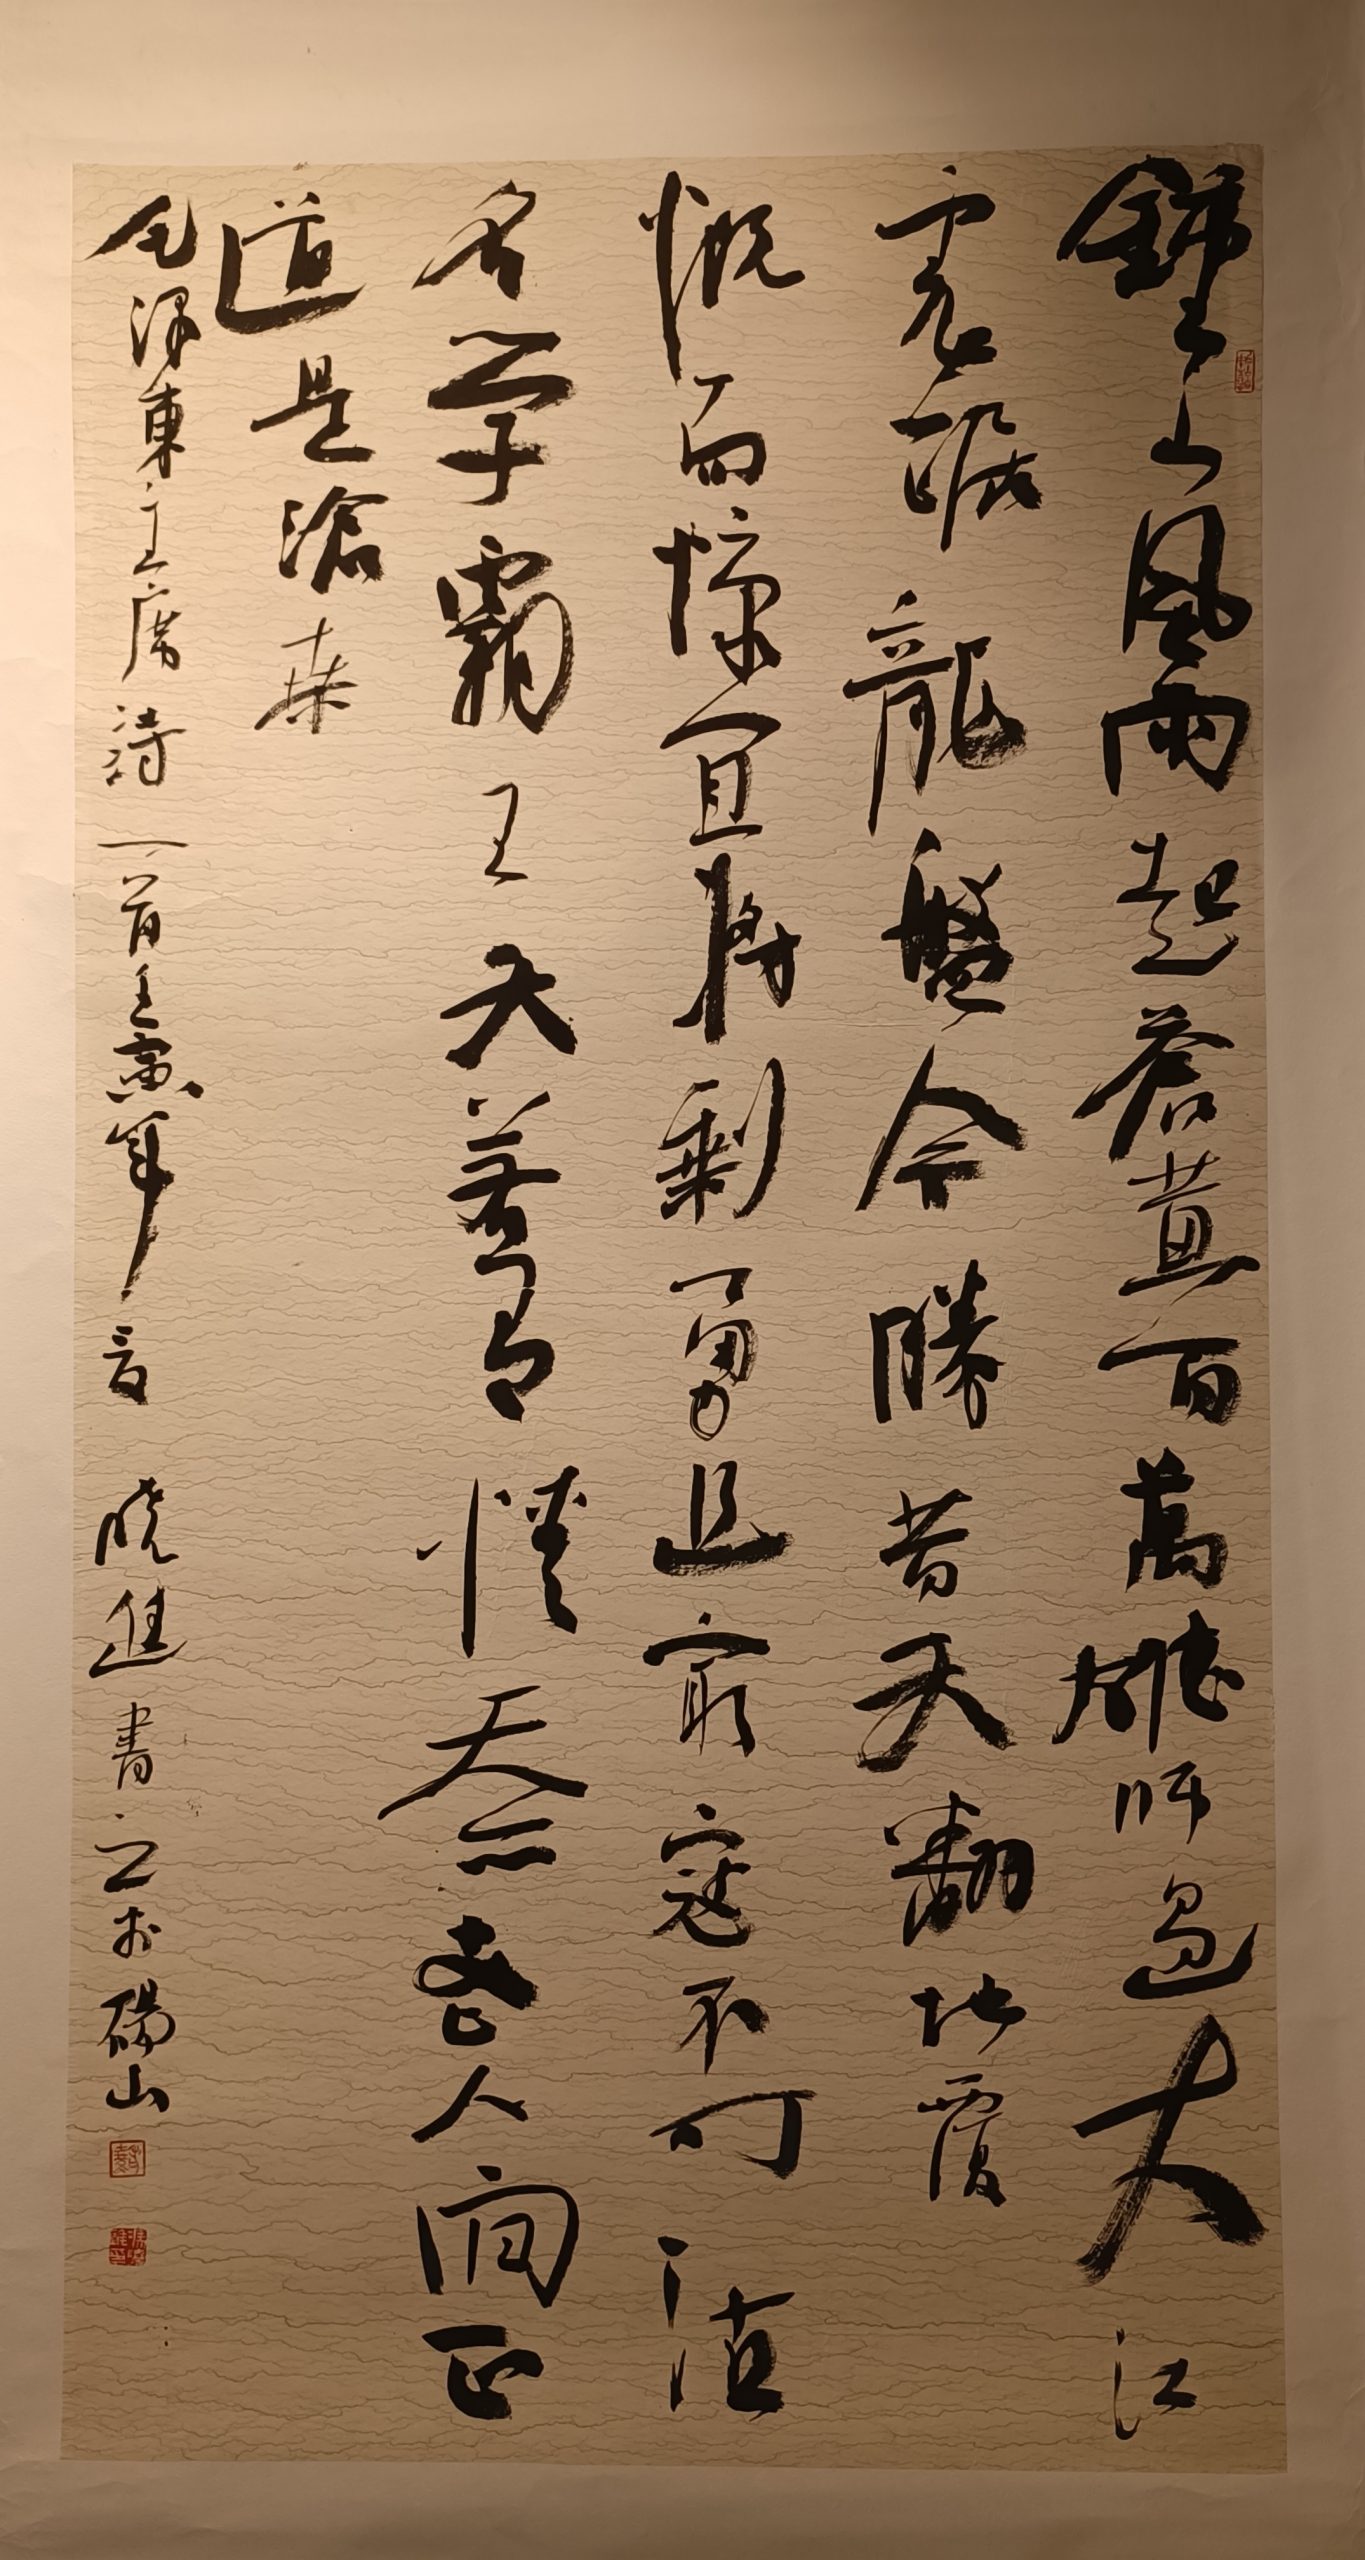 鍾山風雨起蒼黃百萬雄師過大江
虎踞龍盤今勝昔天翻地覆
慨而慷宜將剩勇追窮寇不可沽
名學霸王天若有情天亦老人間正
道是滄桑
毛澤東主席詩一首壬寅年夏 曉進書之於碭山